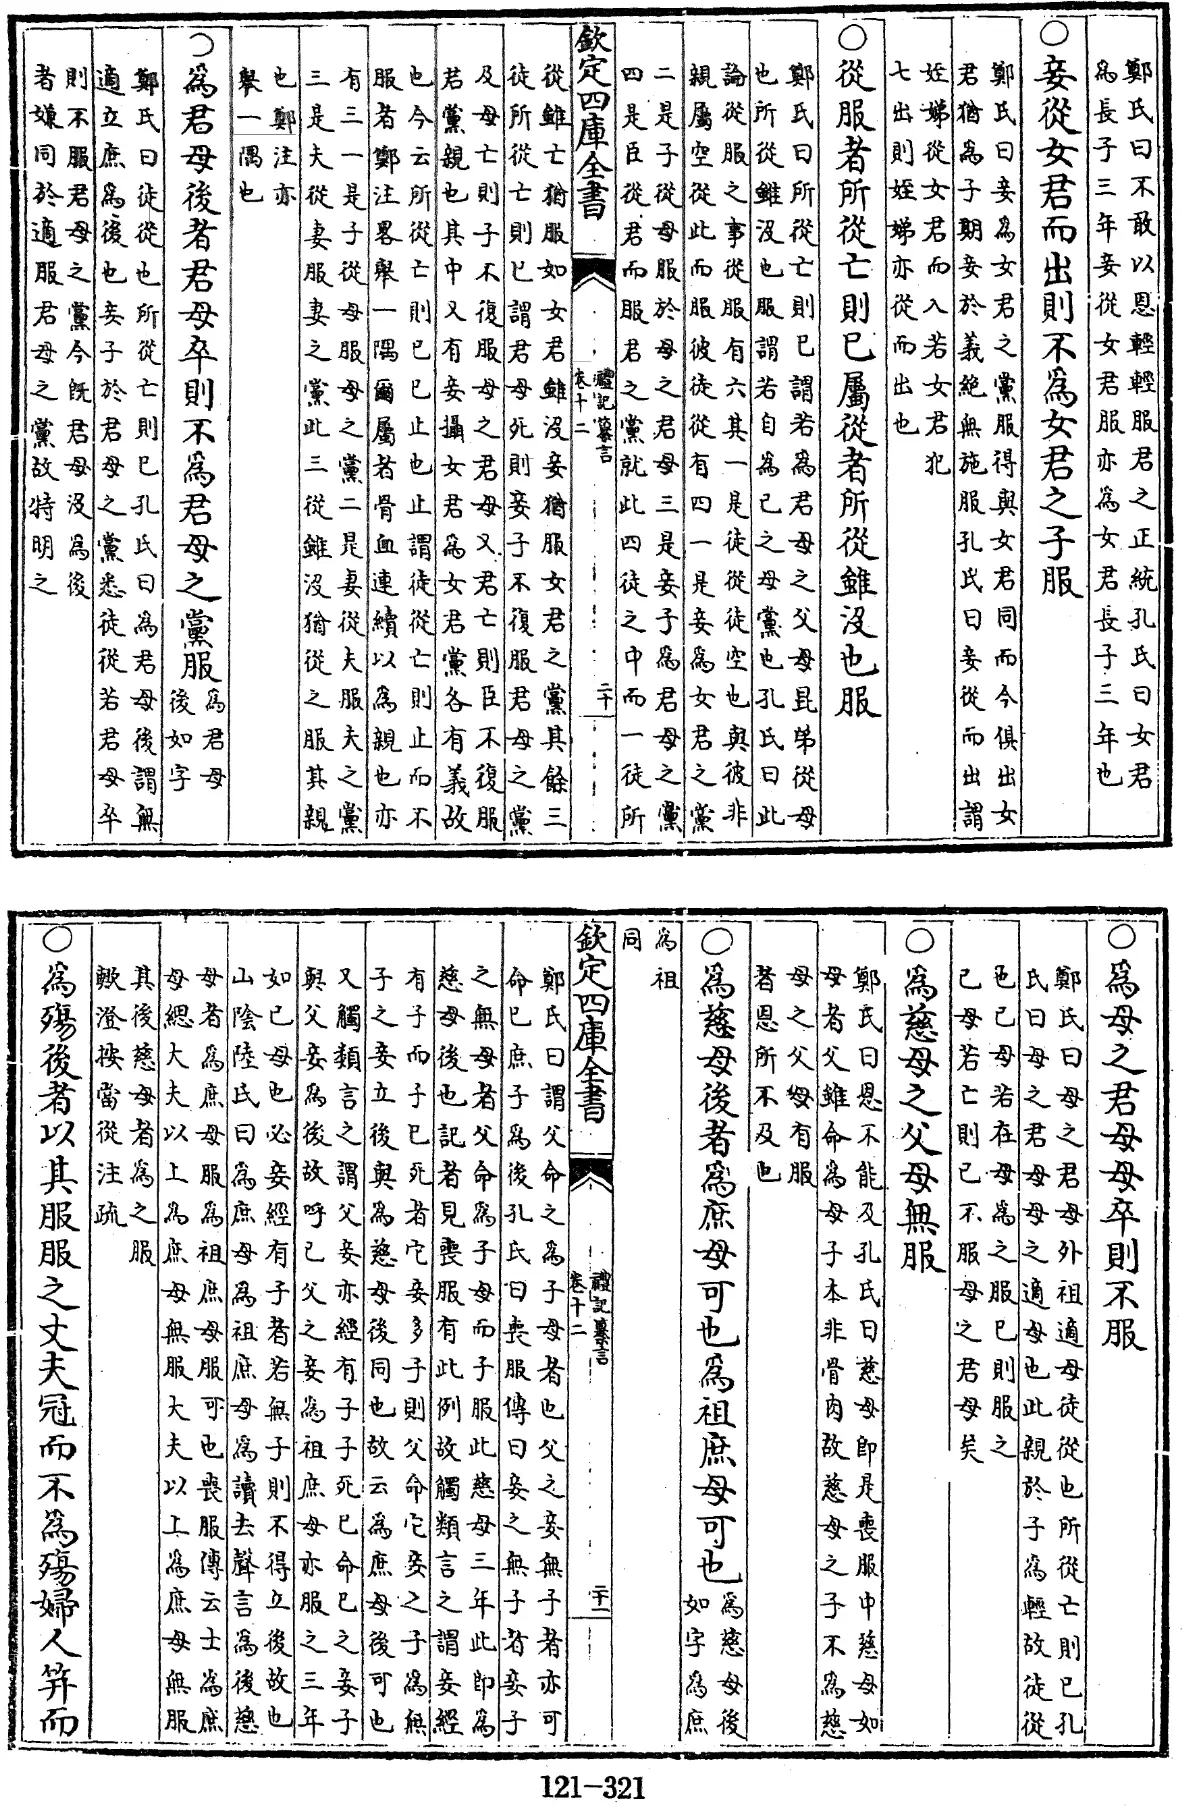 鄭氏曰不敢以恩輕輕服君之正統孔氏曰女君
為長子三年妾從女君服亦為女君長子三年也
○妾從女君而出則不為女君之子服
鄭氏曰妾為女君之黨服得與女君同而今俱出女
君猶為子期妾於義絶無施服孔氏曰妾從而出謂
姪娣從女君而入若女君犯
七出則姪娣亦從而出也
○從服者所從亡則已屬從者所從雖沒也服
鄭氏曰所從亡則已謂若為君母之父母昆弟從母
也所從雖沒也服謂若自為己之母黨也孔氏曰此
論從服之事從服有六其一是徒從徒空也與彼非
親屬空從此而服彼徒從有四一是妾為女君之黨
二是子從母服於母之君母三是妾子為君母之黨
四是臣從君而服君之黨就此四徒之中而一徒所
欽定四庫全書
禮記纂言
卷十二
二十
從雖亡猶服如女君雖沒妾猶服女君之黨其餘三
徒所從亡則已謂君母死則妾子不復服君母之黨
及母亡則子不復服母之君母又君亡則臣不復服
君黨親也其中又有妾攝女君為女君黨各有義故
也今云所從亡則已已止也止謂徒從亡則止而不
服者鄭注畧舉一隅爾屬者骨血連續以為親也亦
有三一是子從母服母之黨二是妻從夫服夫之黨
三是夫從妻服妻之黨此三從雖沒猶從之服其親
也鄭注亦
舉一隅也
○為君母後者君母卒則不為君母之黨服
為君母
後如字
鄭氏曰徒從也所從亡則已孔氏曰為君母後謂無
適立庶為後也妾子於君母之黨悉徒從若君母卒
則不服君母之黨今既君母沒為後
者嫌同於適服君母之黨故特明之
○為母之君母母卒則不服
鄭氏曰母之君母外祖適母徒從也所從亡則已孔
氏曰母之君母母之適母也此親於子為輕故徒從
也己母若在母為之服己則服之
己母若亡則己不服母之君母矣
○為慈母之父母無服
鄭氏曰恩不能及孔氏曰慈母即是喪服中慈母如
母者父雖命為母子本非骨肉故慈母之子不為慈
母之父母有服
者恩所不及也
○為慈母後者為庶母可也為祖庶母可也
為慈母後
如字為庶
為祖
同
欽定四庫全書
禮記纂言
卷十二
二十一
鄭氏曰謂父命之為子母者也父之妾無子者亦可
命已庶子為後孔氏曰喪服傳曰妾之無子者妾子
之無母者父命為子母而子服此慈母三年此即為
慈母後也記者見喪服有此例故觸類言之謂妾經
有子而子已死者它妾多子則父命它妾之子為無
子之妾立後與為慈母後同也故云為庶母後可也
又觸類言之謂父妾亦經有子子死已命已之妾子
與父妾為後故呼已父之妾為祖庶母亦服之三年
如己母也必妾經有子者若無子則不得立後故也
山陰陸氏曰為庶母為祖庶母為讀去聲言為後慈
母者為庶母服為祖庶母服可也喪服傳云士為庶
母緦大夫以上為庶母無服大夫以上為庶母無服
其後慈母者為之服
歟澄按當從注疏
○為殤後者以其服服之丈夫冠而不為殤婦人筓而
121-321